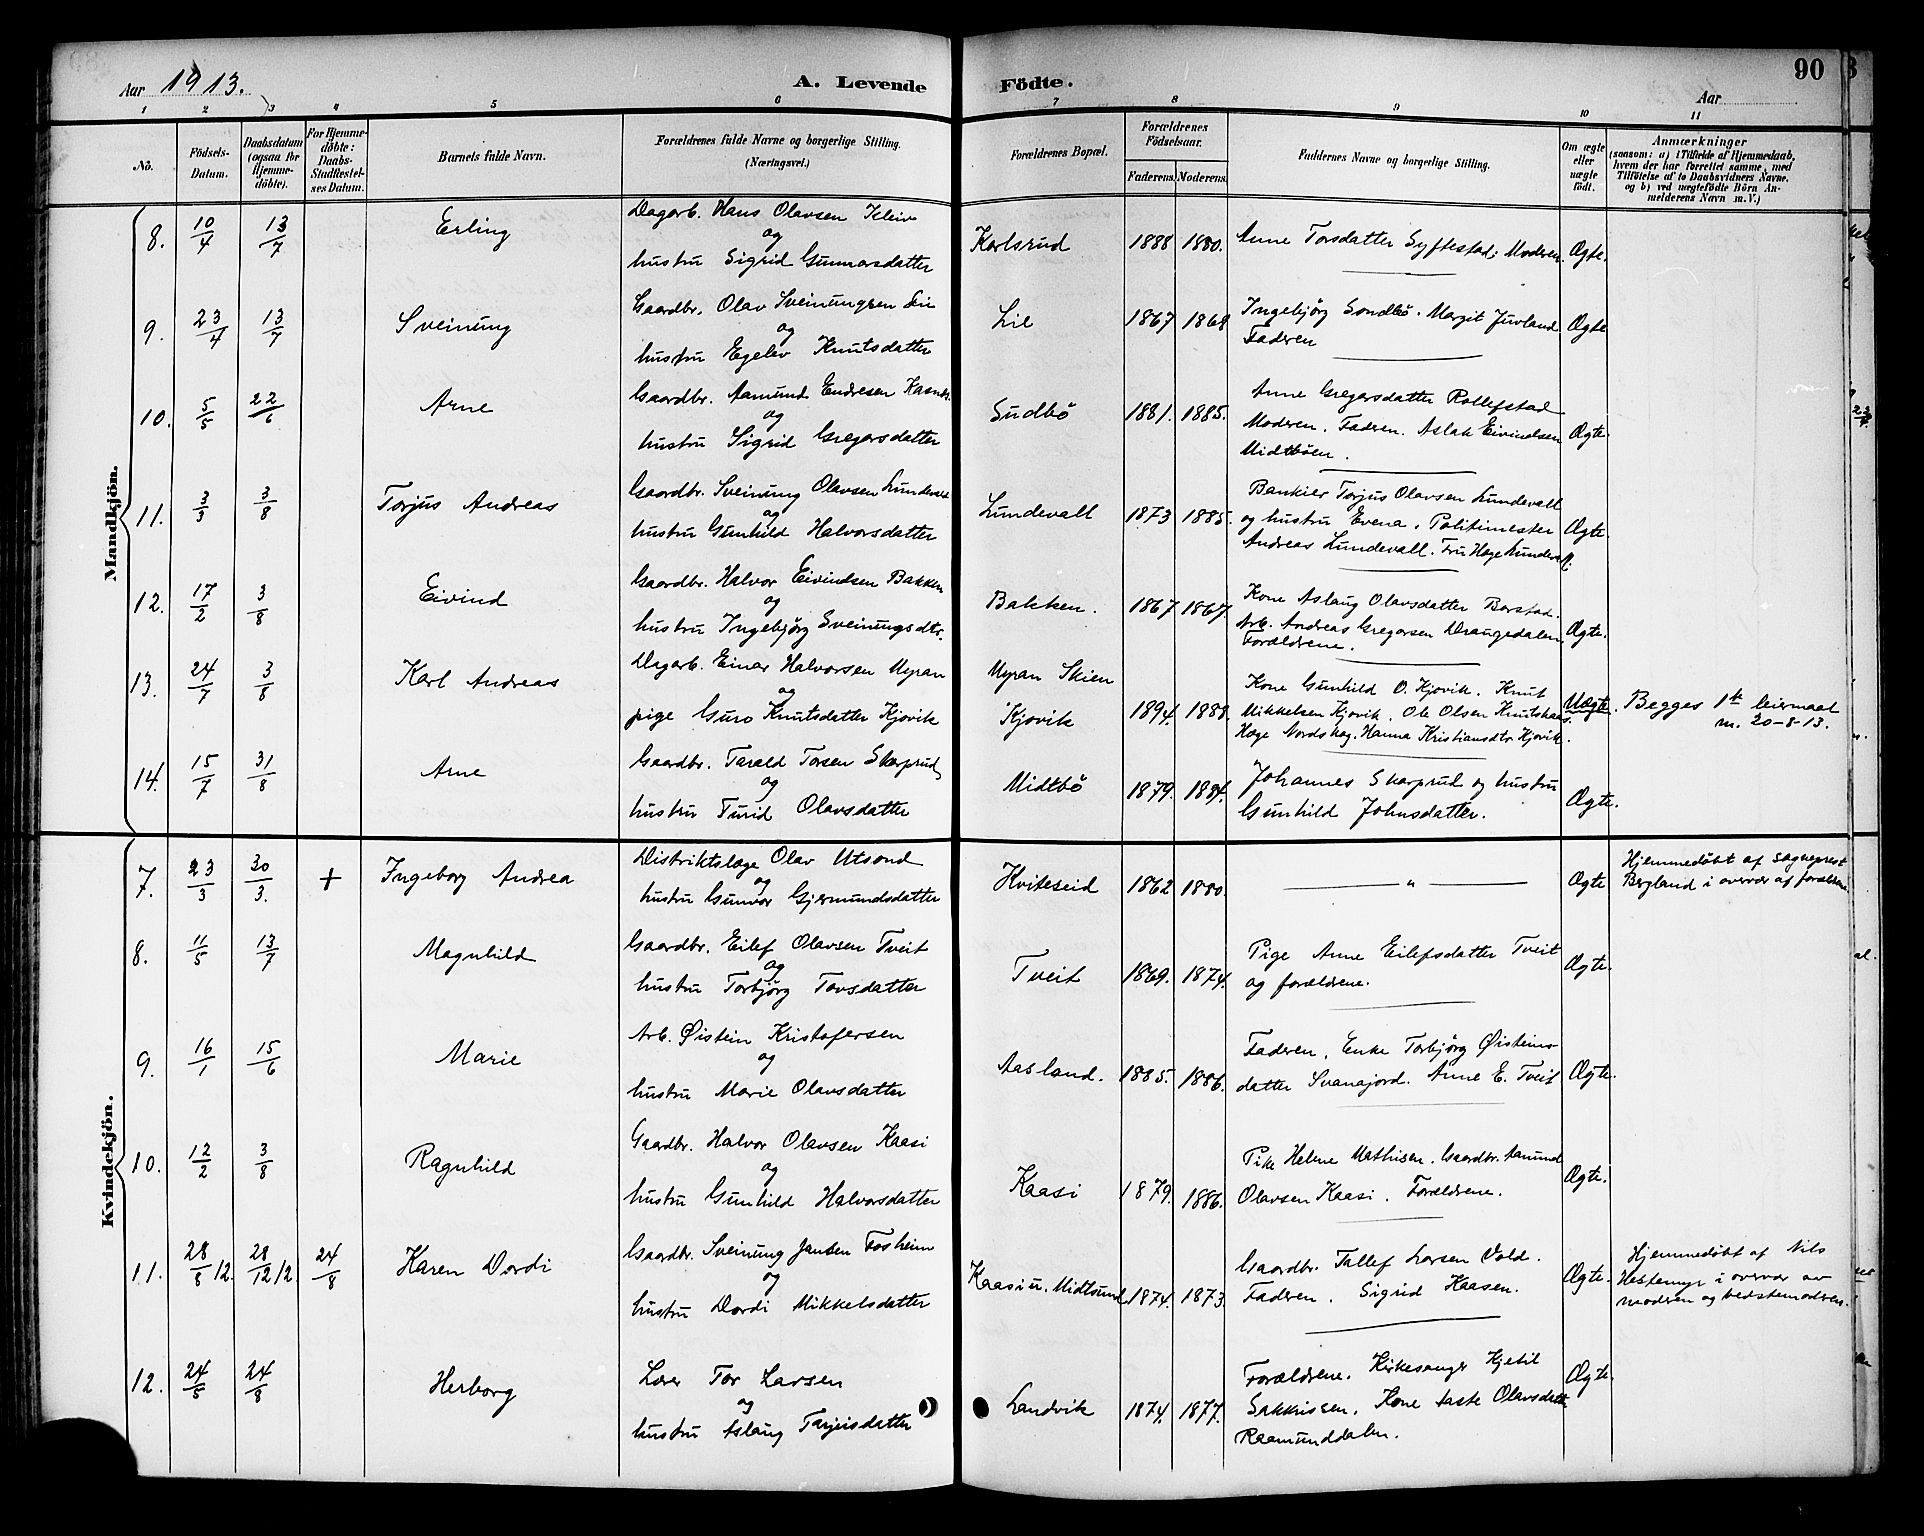 Aar 1913.
A. Levende Födte.
90
Aar
1 2 3 4 5 6 7 8 9 10 11
No.
Födsels-Datum.
Daabsdatum (ogsaa for Hjemme-döbte).
For Hjemme-döbte: Daabs-Stadfæstel-ses Datum.
Barnets fulde Navn.
Forældrenes fulde Navne og borgerlige Stilling.
(Næringsvei.)
Forældrenes Bopæl.
Forældrenes Födselsaar.
Faderens. Moderens.
Faddernes Navne og borgerlige Stilling.
Om ægte eller uægte födt.
Anmærkninger
(saasom: a) i Tilfælde af Hjemmedaab, hvem der har forrettet samme, med Tilföielse af to Daabsvidners Navne. og b) ved uægtefödte Börn An-melderens Navn m. V.)
Mandkjön.
8. 10/4 13/7 Erling
Dagarb. Hans Olavsen Kleiv
og
hustru Sigrid Gunnarsdatter
Karlsrud 1888 1880.
Anne Torsdatter Syftestad; Moderen.
Ægte.
9. 23/4 13/7 Sveinung
Gaardbr. Olav Sveinungsen Lie
og
hustru Egelev Knutsdatter
Lie 1867 1868
Ingebjörg Sondbö. Margit Juvland
Faderen
Ægte
10. 5/5 22/6 Arne
Gaardbr. Aamund Endresen
og
hustru Sigrid Gregarsdatter
Sudbö 1881. 1885.
Anne Gregarsdatter Rollefstad
Moderen. Faderen. Aslak Eivindsen
Midtböen.
Ægte.
11. 3/3 3/8 Torjus Andreas
Gaardbr. Sveinung Olavsen Lundevall
og
hustru Gunhild Halvorsdatter
Lundevall 1873 1885.
Bankier Torjus Olavsen Lundevall
og hustru Evena. Politimester
Andreas Lundevall. Fru Hæge Lundevall.
Ægte.
12. 17/2 3/8 Eivind
Gaardbr. Halvor Eivindsen Bakken
og
hustru Ingebjörg Sveinungsdtr.
Bakken. 1867 1867.
Kone Aslaug Olavsdatter Berstad.
Arb. Andreas Gregersen Drangedalen
Forældrene.
Ægte.
13. 24/7 3/8 Karl Andreas
Dagarb. Einar Halvorsen Myran
og
pige Guro Knutsdatter Kjovik
Myran Skien
Kjovik 1894. 1888.
Kone Gunhild O. Kjovik. Knut
Mikkelsen Kjovik. Ole Olsen Knutskaas.
Hæge Nordskog. Hanna Kristiansdtr. Kjovik.
Uægte.
Begges 1ste leiermaal
m. 20-8-13.
14. 15/7 31/8 Arne
Gaardbr. Tarald Torsen Skarprud
og
hustru Turid Olavsdatter
Midtbö 1879. 1884.
Johannes Skarprud og hustru
Gunhild Johnsdatter.
Ægte.
Kvindekjön.
7. 23/3 30/3. + Ingeborg Andrea
Distriktslæge Olav Utsond
og
hustru Gunvor Gjermundsdatter
Kviteseid 1862 1880
"
Ægte
Hjemmedöbt af sogneprest
Bergland i overvær af forældrene
8. 11/5 13/7 Magnhild
Gaardbr. Eilef Olavsen Tveit
og
hustru Torbjörg Tovsdatter
Tveit 1869. 1874.
Pige Anne Eilefsdatter Tveit
og forældrene.
Ægte.
9. 16/1 15/6 Marie
Arb. Øistein Kristofersen
og
hustru Marie Olavsdatter
Aasland. 1885. 1886.
Faderen. Enke Torbjörg Øisteins-
datter Svanajord. Anne E. Tveit
Ægte.
10. 12/2 3/8 Ragnhild
Gaardbr. Halvor Olavsen Kaasi
og
hustru Gunhild Halvorsdatter
Kaasi 1879. 1886.
Pike Helene Mathisen. Gaardbr. Aamund
Olavsen Kaasi. Forældrene.
Ægte.
11. 28/8 12. 28/12 12 24/8 Karen Dordi
Gaardbr. Sveinung Jansen Fosheim
og
hustru Dordi Mikkelsdatter
Kaasi u. Midtsund 1874. 1873.
Gaardbr. Tallef Larsen Vold.
Faderen. Sigrid Kaasen.
Ægte.
Hjemmedöbt af Nils
Hestemyr i overvær av
moderen og bedstemoderen.
12. 24/5 24/8 Herborg
Lærer Tor Larsen
og
hustru Aslaug Tarjeisdatter
Landvik 1874. 1877.
Forældrene. Kirkesanger Kjetil
Sakkrissen. Kone Aaste Olavsdatter
Raamunddalen.
Ægte.